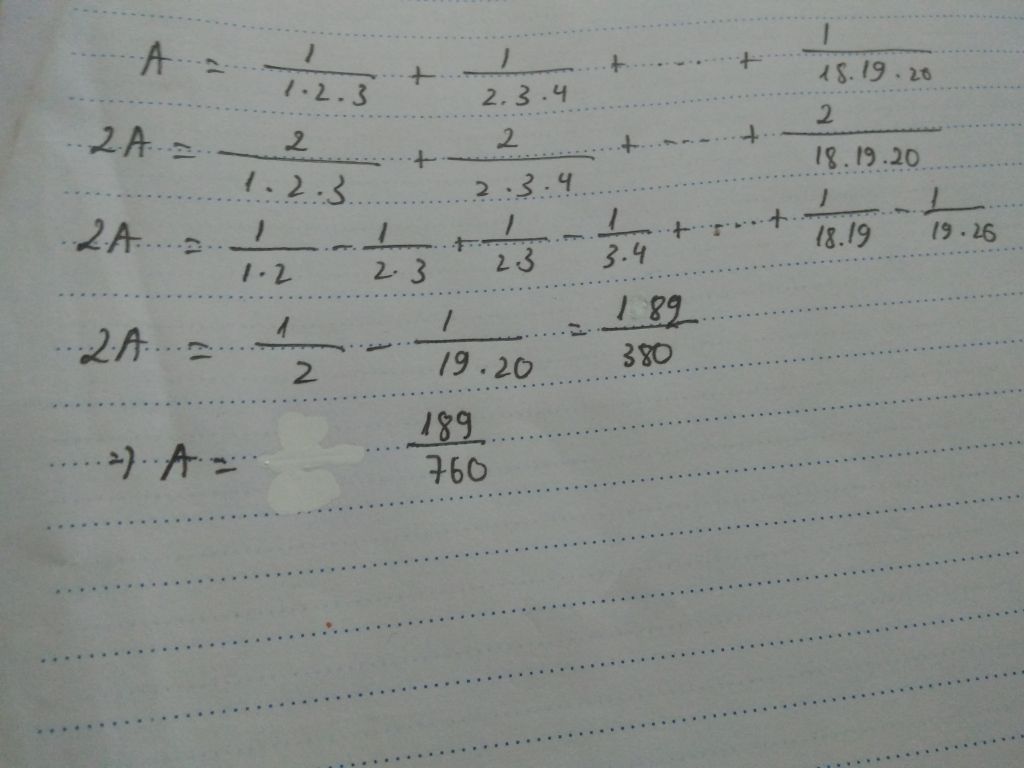 A = 1/1.2.3 + 1/2.3.4 + .... + 1/18.19.20
2A = 2/1.2.3 + 2/2.3.4 + .... + 2/18.19.20
2A = 1/1.2 - 1/2.3 + 1/2.3 - 1/3.4 + .... + 1/18.19 - 1/19.20
2A = 1/2 - 1/19.20 = 189/380
=> A = 189/760